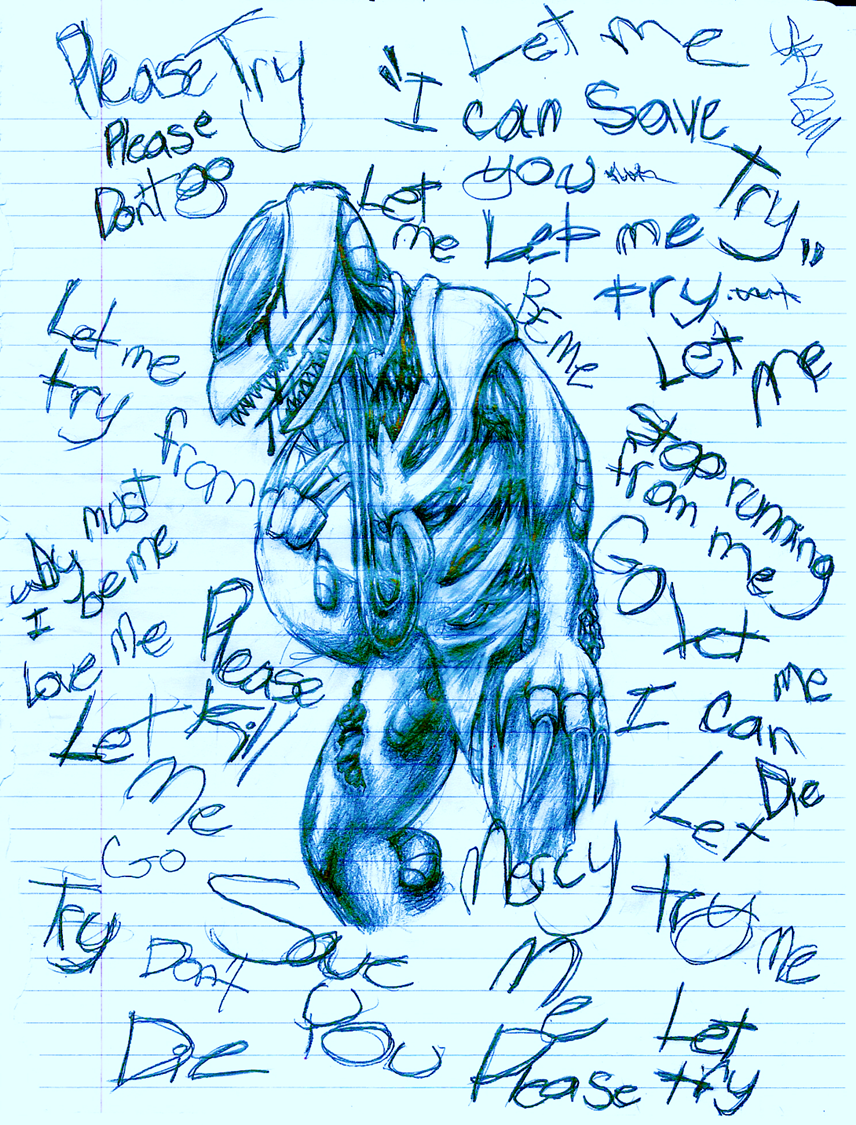 Please Try
Please
Don't go
Let me
"I can Save
you
Try"
Let
me
Let me
try
BE ME
Let
me
Let me
try
from
Stop running
from me
Why must
I be me
GO
Let
me
Love me
Please
I can
Let Kill
Me
Die
Let
Go
Mercy
Try
try
Me
Don't
Save
Me
Die
You
Let
Please try